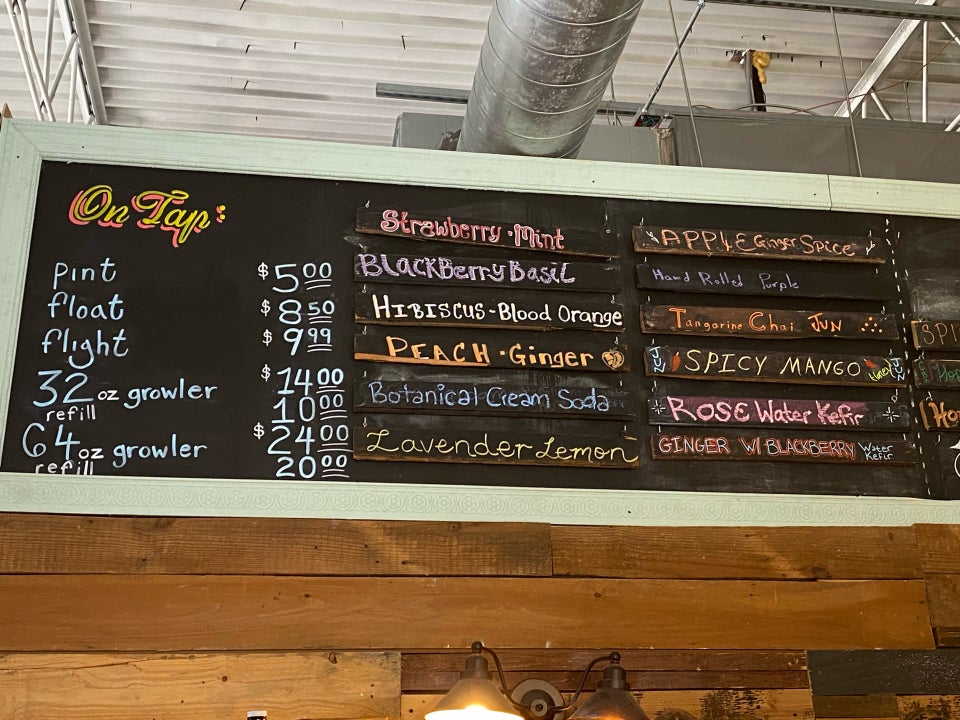 On Tap:
pint $5.00
float $8.50
flight $9.99
32 oz growler $14.00
refill 10.00
64 oz growler $24.00
refill 20.00
Strawberry • Mint
BLACKBerry BasiL
HIBISCUS - Blood Orange
PEACH • Ginger
Botanical Cream Soda
Lavender Lemon
APPLE Ginger Spice
Hand Rolled Purple
Tangarine Chai JUN
JUN SPICY MANGO Honey JUN
ROSE Water Kefir
GINGER W/ BLACKBERRY Water Kefir